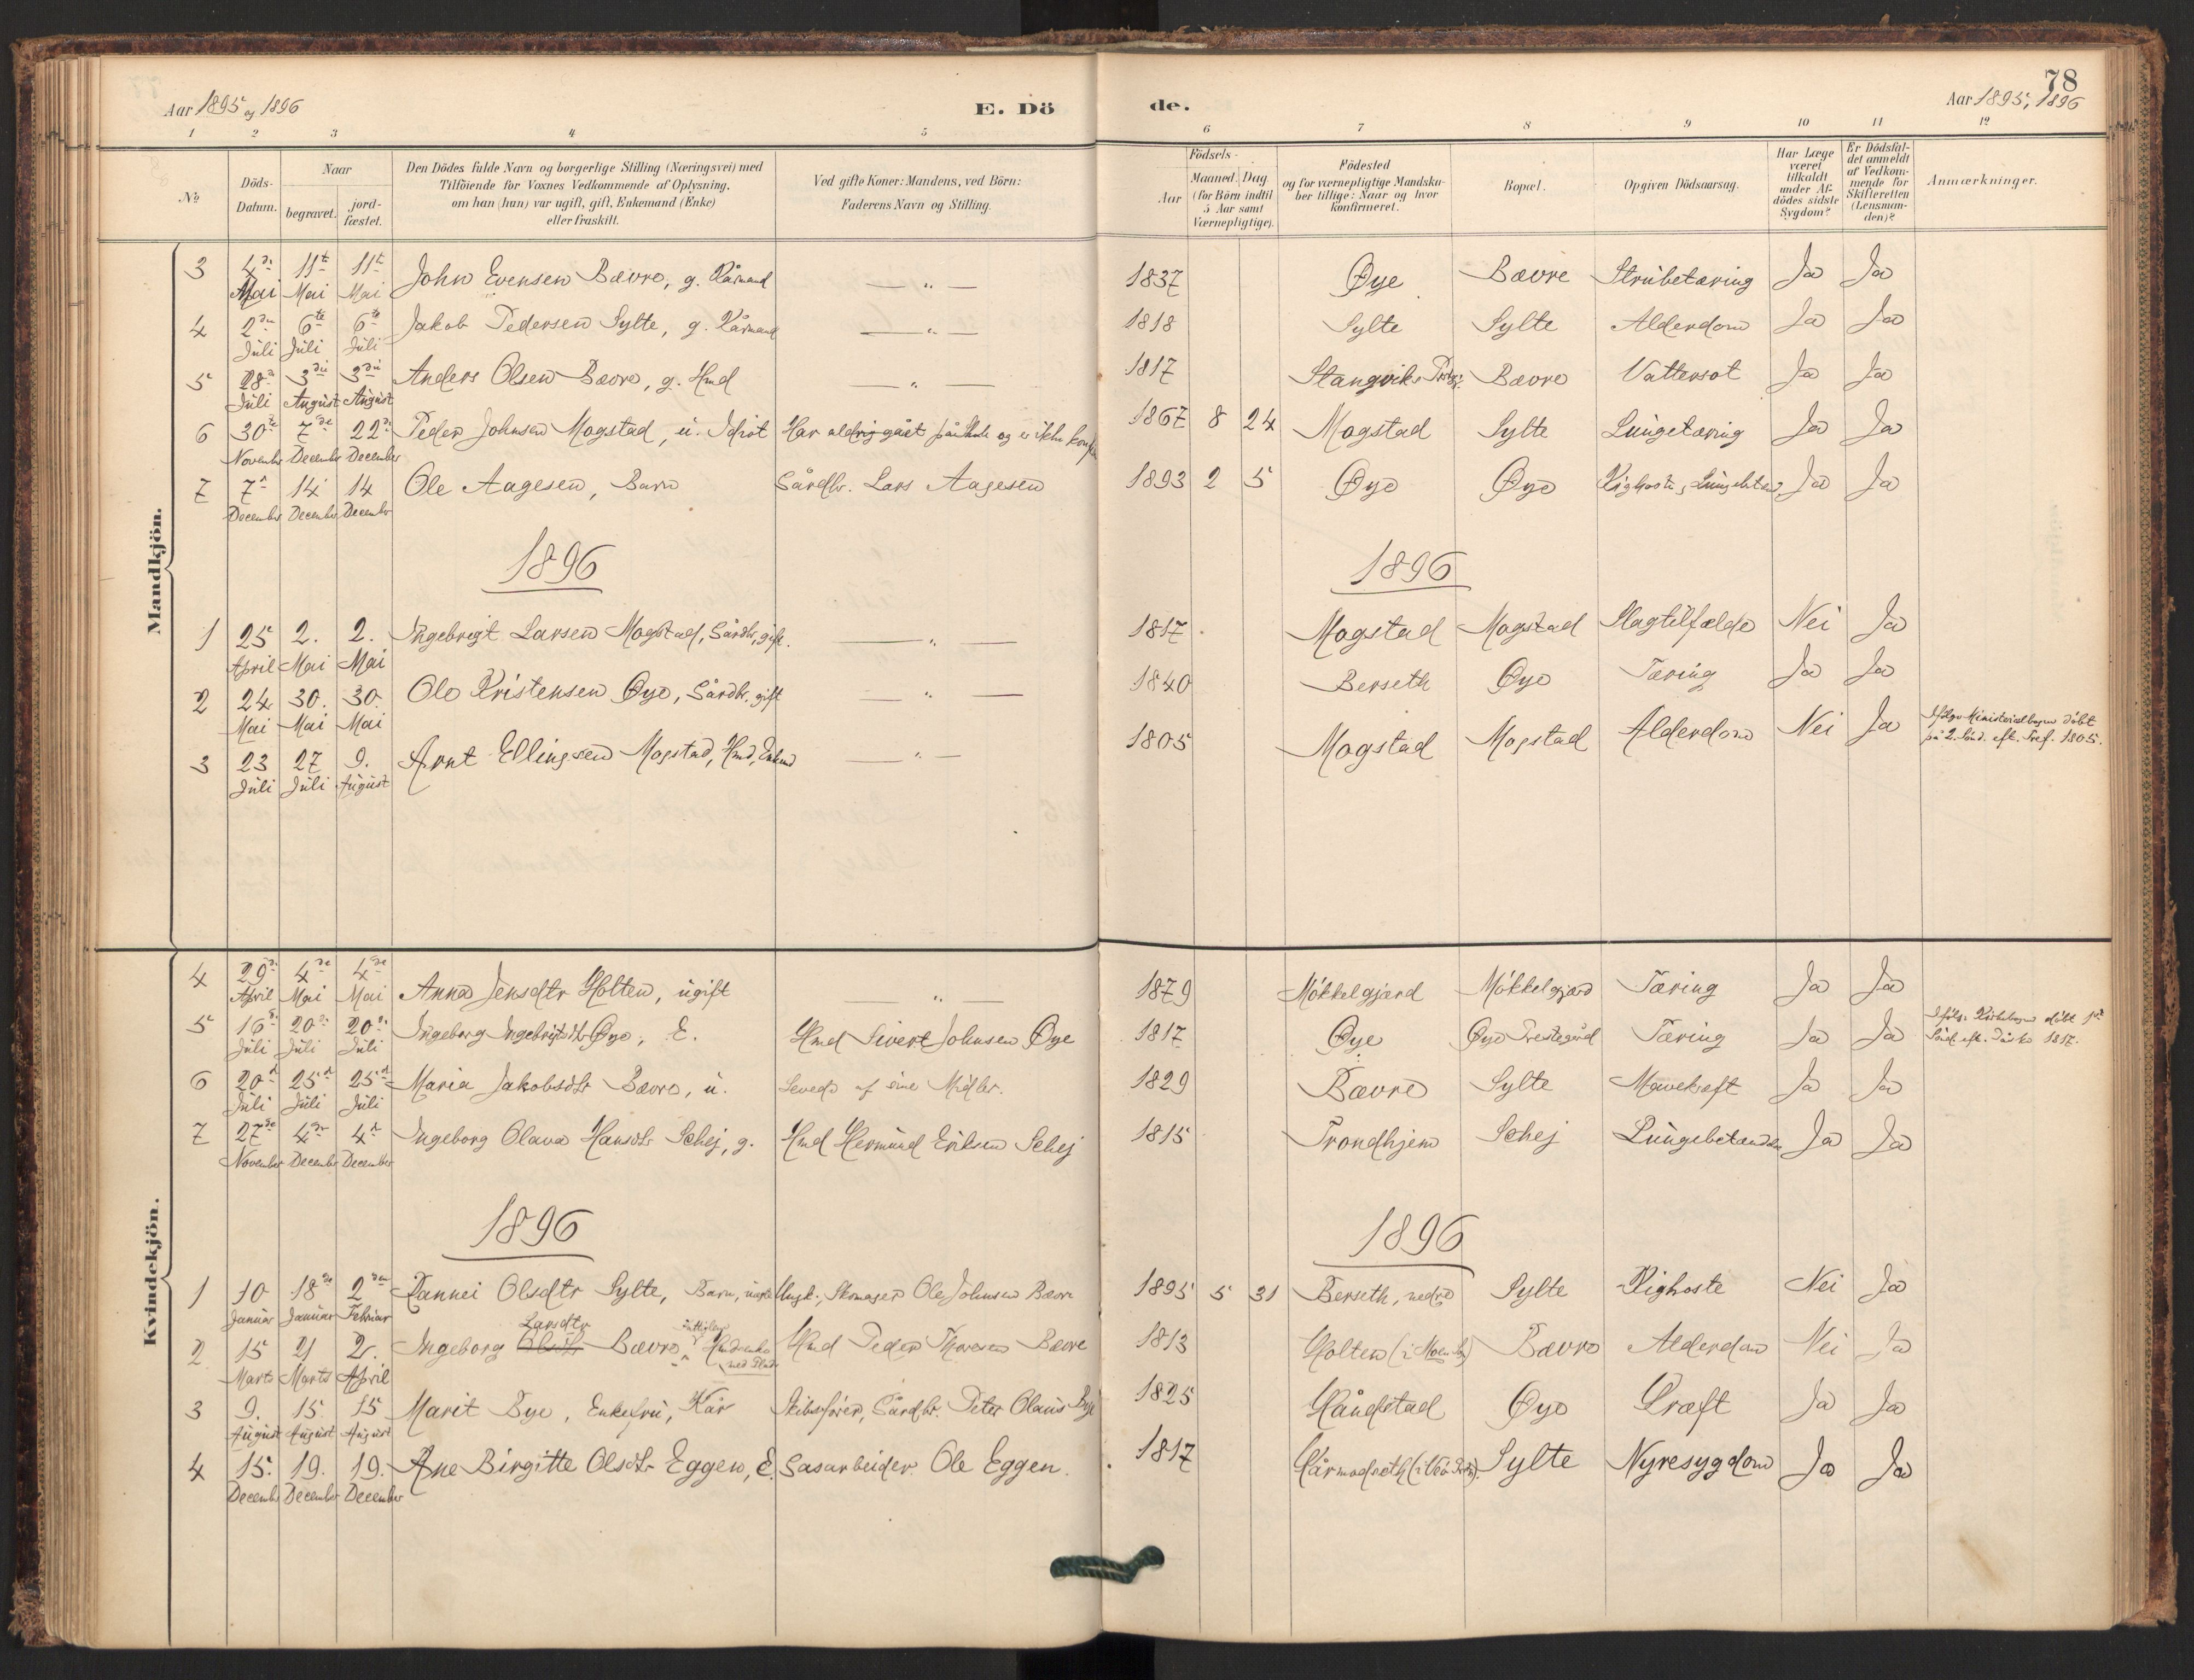 Aar 1895 og 1896
E. Dö
de.
78
Aar 1895, 1896
1 2 3 4 5 6 7 8 9 10 11 12
№
Döds-Datum.
Naar
begravet.
jord-fæstet.
Den Dödes fulde Navn og borgerlige Stilling (Næringsvei) med
Tilföiende for Voxnes Vedkommende af Oplysning,
om han (hun) var ugift, gift, Enkemand (Enke)
eller fraskilt.
Ved gifte Koner: Mandens, ved Börn:
Faderens Navn og Stilling.
Födsels-
Aar
Maaned. Dag.
(for Börn indtil
5 Aar samt
Værnepligtige).
Födested
og for værnepligtige Mandska-
ber tillige: Naar og hvor
konfirmeret.
Bopæl.
Opgiven Dödsaarsag.
Har Læge
været
tilkaldt
under Af-
dödes sidste
Sygdom?
Er Dödsfal-
det anmeldt
af Vedkom-
mende for
Skifteretten
(Lensman-
den)?
Anmærkninger.
Mandkjön.
3 4de Mai 11te Mai 11te Mai John Evensen Bævre, g. Kårmand — " — 1837 Øye Bævre Strubetæring Ja Ja
4 2den Juli 6te Juli 6te Juli Jakob Pedersen Sylte, g. Kårmand — " — 1818 Sylte Sylte Alderdom Ja Ja
5 28de Juli 3die August 3die August Anders Olsen Bævre, g. Hmd — " — 1817 Stangviks Bævre Vattersot Ja Ja
6 30te November 7de December 22de December Peder Johnsen Mogstad, u. Idiot Har aldrig gået på skole og er ikke 1867 8 24 Mogstad Sylte Lungetæring Ja Ja
7 7de December 14 December 14 December Ole Aagesen, Barn Gårdbr. Lars Aagesen 1893 2 5 Øye Øye Kighoste, Ja Ja
1896
1896
1 25 April 2. Mai 2. Mai Ingebrigt Larsen Mogstad, Gårdbr, gift. — " — 1817 Mogstad Mogstad Slagtilfælde Nei Ja
2 24 Mai 30. Mai 30. Mai Ole Kristensen Øye, Gårdbr, gift — " — 1840 Berseth Øye Tæring Ja Ja
3 23 Juli 27 Juli 9. August Arnt Ellingsen Mogstad, Hmd, Enkmd — " — 1805 Mogstad Mogstad Alderdom Nei Ja Ifølge Ministerialbogen döbt
på 2. Sönd. eft. Tref. 1805.
Kvindekjön.
4 29de April 4de Mai 4de Mai Anna Jensdtr Holten, ugift — " — 1879 Mökkelgjærd Mökkelgjærd Tæring Ja Ja
5 16de Juli 20de Juli 20de Juli Ingeborg Ingebrigtsdtr Øye, E. Hmd Sivert Johnsen Øye 1817 Øye Øye Prestegård Tæring Ja Ja Ifölge Kirkebogen döbt 1ste
Sönd. eft. Påske 1817.
6 20de Juli 25de Juli 25de Juli Maria Jakobsdtr Bævre, u. Levede af sine Midler. 1829 Bævre Sylte Mavekræft Ja Ja
7 27de November 4de December 4de December Ingeborg Olava Hansdtr Schej, g. Hmd Hermund Eriksen Schej 1815 Trondhjem Schej Ja Ja
1896
1896
1 10 Januar 18de Januar 2den Februar Rannei Olsdtr Sylte, Barn, uægte Ungk., Skomager Ole Johnsen Bævre 1895 5 31 Berseth, nedre Sylte Kighoste Nei Ja
2 15 Marts 21 Marts 2. April Ingeborg Olsdtr Larsdtr Bævre, Hmd Peder Thoresen Bævre 1813 Holten Bævre Alderdom Nei Ja
3 9. August 15. August 15 August Marit Bye, Enkefru, Kår Skibsfører, Gårdbr. Peter Olaus Bye 1825 Håndstad Øye Kræft Ja Ja
4 15. December 19. December 19. December Ane Birgitte Olsdtr Eggen, E. Gasarbeider Ole Eggen. 1817 Sylte Nyresygdom Ja Ja